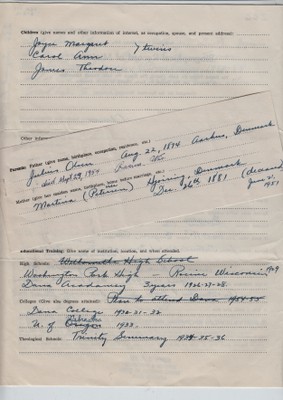 Children (give names and other information of interest, as occupation, spouse, and present address):
Joyce Margaret } twins
Carol Ann
James Theodore
Other information
Parents: Father (give name, birthplace, occupation, residence, etc.)
Julius Olsen Aug 22, 1874 Aarhus, Denmark
died Sept 29, 1954 Racine, Wis
Mother (give her maiden name, birthplace, dates before marriage, etc.)
Martina (Petersen) Hjorring, Denmark
Dec 26th 1881 (deceased)
June 2, 1951
Educational Training: Give name of institution, location, and when attended.
High School: High School
Washington Park High - Racine Wisconsin 1929
Dana Academy 3 years 1926-27-28.
Colleges (Give also degrees attained): Dana
Dana College 1932-31-32
U. of Oregon 1933.
Theological Schools: Trinity Seminary 1934-35-36